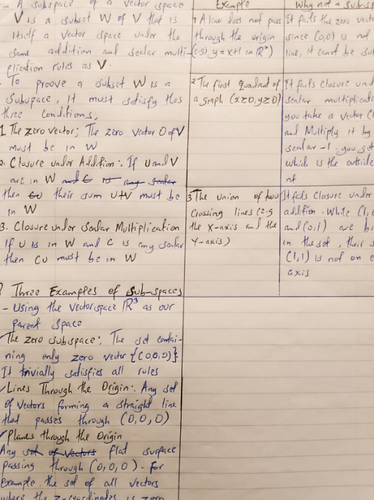 - A subspace of a vector space
V is a subset W of V that is
itself a vector space under the
same addition and scalar multi-
plication rules as V.
- To proove a subset W is a
subspace, it must satisfy this
three conditions.
1. The zero vector; The zero vector 0 of V
must be in W
2. Closure under Addtion: If U and V
are in W and C is any scalar
then CU their sum U+V must be
in W
3. Closure under Scalar Multiplication
If U is in W and C is any scalar
then CU must be in W
Three Examples of Sub-spaces
- Using the vectorspace R³ as our
parent space
✓The zero subspace: The set contai-
ning only zero vector {(0,0,0)}
It trivially satisfies all rules
✓Lines Through the Origin: Any set
of vectors forming a straight line
that passes through (0,0,0)
✓Planes through the Origin
Any set of vectors flat surface
passing through (0,0,0) - for
Example, the set of all vectors
where the z-coordinates is zero
Example
1 A line does not pass
through the origin
(e.g y=x+1 in R²)
2 The first quadrant of
a graph (x≥0, y≥0)
3 The union of two
crossing lines (e.g
the X-axis and the
Y-axis)
Why not a subs
It fails the zero vect
since (0,0) is not
line, it cannot be sub
It fails closure und
scalar multiplicati
you take a vector (
and Multiply it by
scalar -1, you get
which is the outside
nt
It fails Closure under
addition. While (1,
and (0,1) are b
in the set, their s
(1,1) is not on e
axis